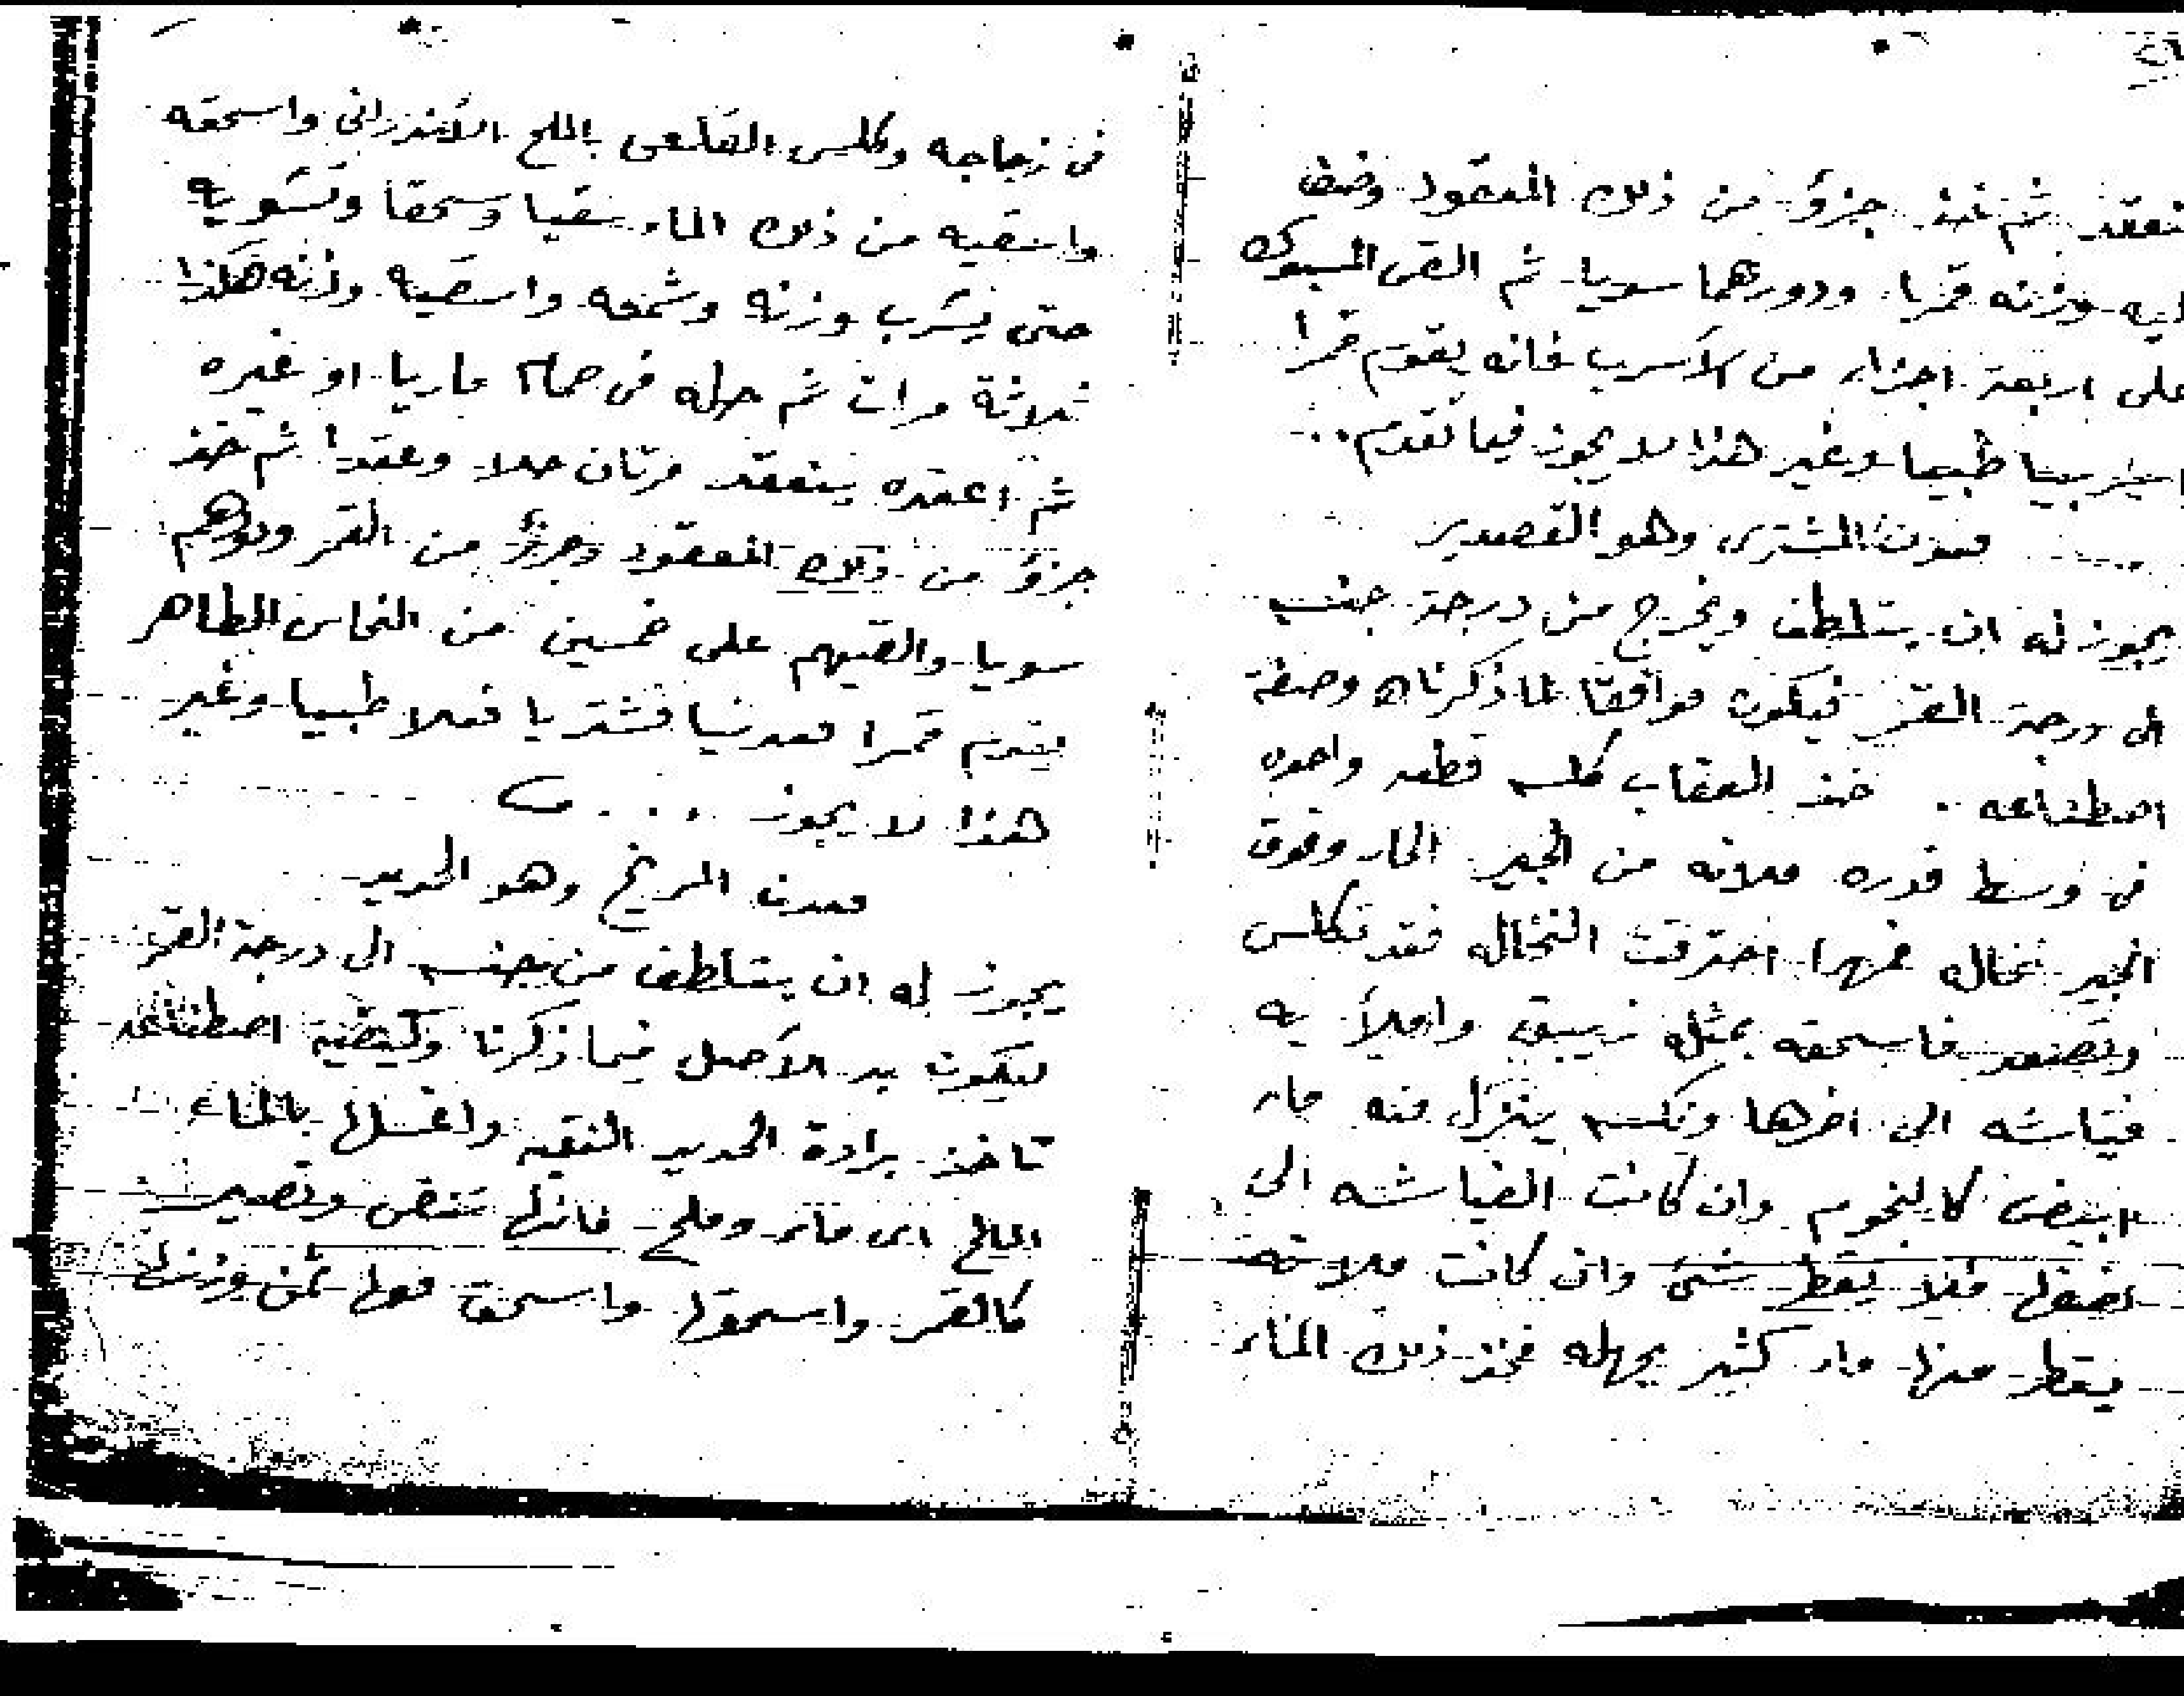 ينعقد ثم خذ جزؤ من ذلك المعقود وضف
اليه وزنه قمرا ودورهما سويا ثم القى المسبوك
على اربعة اجزاء من الأسرب فانه يقوم قمرا
طبيعيا وغير هذا لا يجوز فيما تقدم ...
معدن المشترى وهو القصدير
يجوز له ان يتلطف ويخرج من درجة جنسه
الى درجة القمر فيكون موافقا لما ذكرناه وصفة
اصطناعه . خذ العقاب كلسه قطعه واحده
فى وسط قدره ملانه من الجير الحار وفوق
الجير نخاله فمهما احترقت النخاله فقد تكلس
وتصعد فاسحقه بمثله زيبق واملأ به
فياشه الى اخرها ونكسه ينزل منه ماء
ابيض كالنجوم وان كانت الفياشه الى
نصفها فلا يقطر شئ وان كانت ملانه
يقطر منها ماء كثير يحله فخذ ذلك الماء
فى زجاجه وكلس القلعى بالملح الأندرانى واسحقه
واسقيه من ذلك الماء سقيا وسحقا وتشويه
حتى يشرب وزنه وشمعه واسقيه وزنه هكذا
ثلاثة مرات ثم حله فى حمام ماريا او غيره
ثم اعقده ينعقد مرتان حلا وعقدا ثم خذ
جزؤ من ذلك المعقود وجزؤ من القمر ودورهم
سويا والقيهم على خمسين من النحاس الطاهر
يقوم قمرا معدنيا مشتريا فعلا طبيعيا وغير
هذا لا يجوز . . .
معدن المريخ وهو الحديد
يجوز له ان يتلطف من جنسه الى درجة القمر
ليكون يد الأصل فيما ذكرنا وكيفية اصطناعه
تاخذ برادة الحديد النقيه واغسلها بالماء
المالح اى ماء وملح فانها تنقى وتصير
كالقمر واسحقها واسحق معها ثمن وزنها